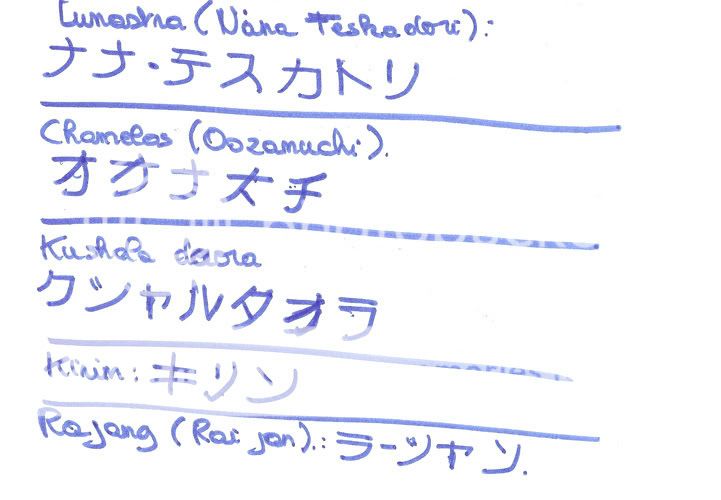 Lunastra (Nana Teskadori):
ナナ・テスカトリ
Chamelos (Oozanuchi).
オオナズチ
Kushala daora
クシャルダオラ
Kirin: キリン
Rajang (Rai jan).: ラージャン.